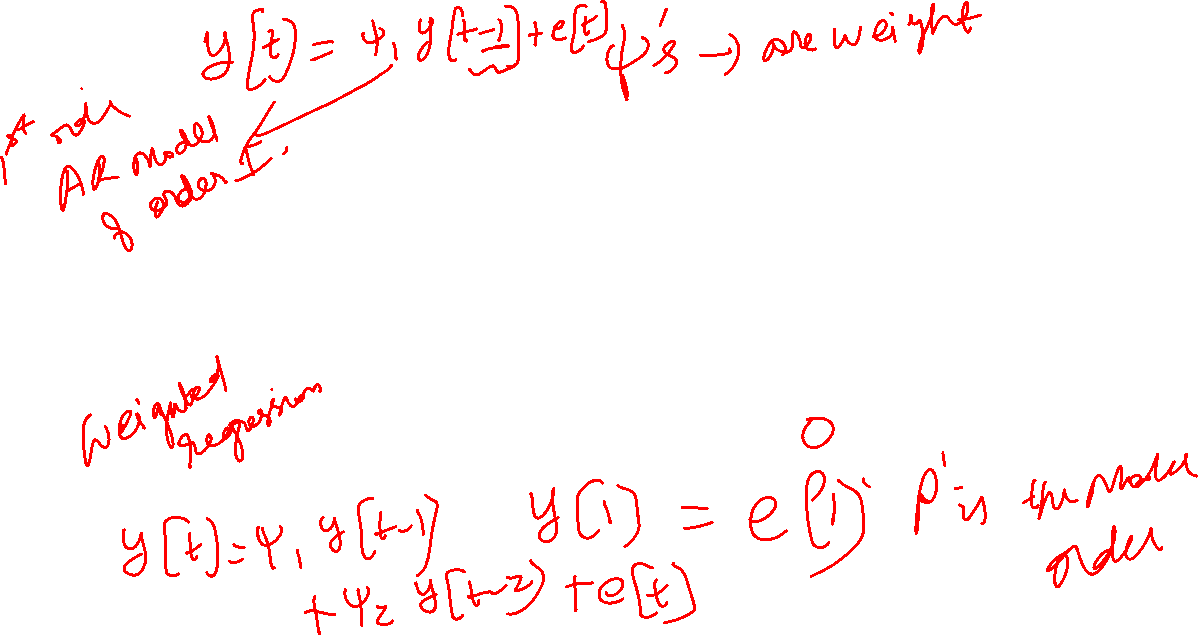 y[t] = ψ₁ y[t-1] + e[t] ψ's → are weight
1st order
AR model
of order 1.
Weighted
regression
y[t] = ψ₁ y[t-1]
+ ψ₂ y[t-2] + e[t]
0
y(1) = e(1)
p' is the Model
order